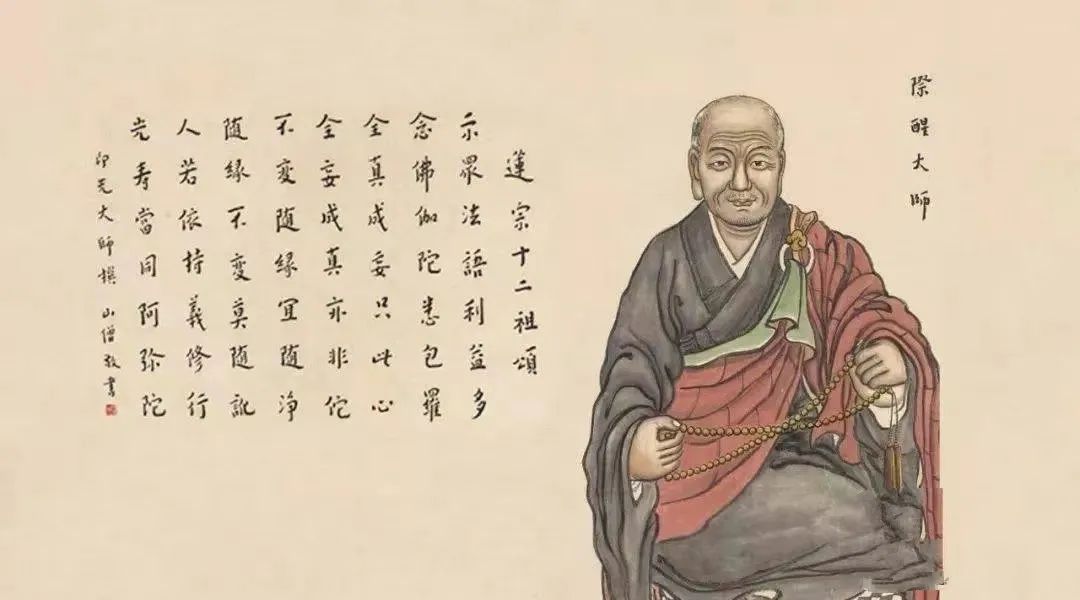 際醒大師
蓮宗十二祖頌
示眾法語利益多
念佛伽陀悉包羅
全真成妄只此心
全妄成真亦非佗
不變随緣宜随淨
随緣不變莫随訛
人若依持義修行
光壽當同阿弥陀
印光大師撰 山僧敬書